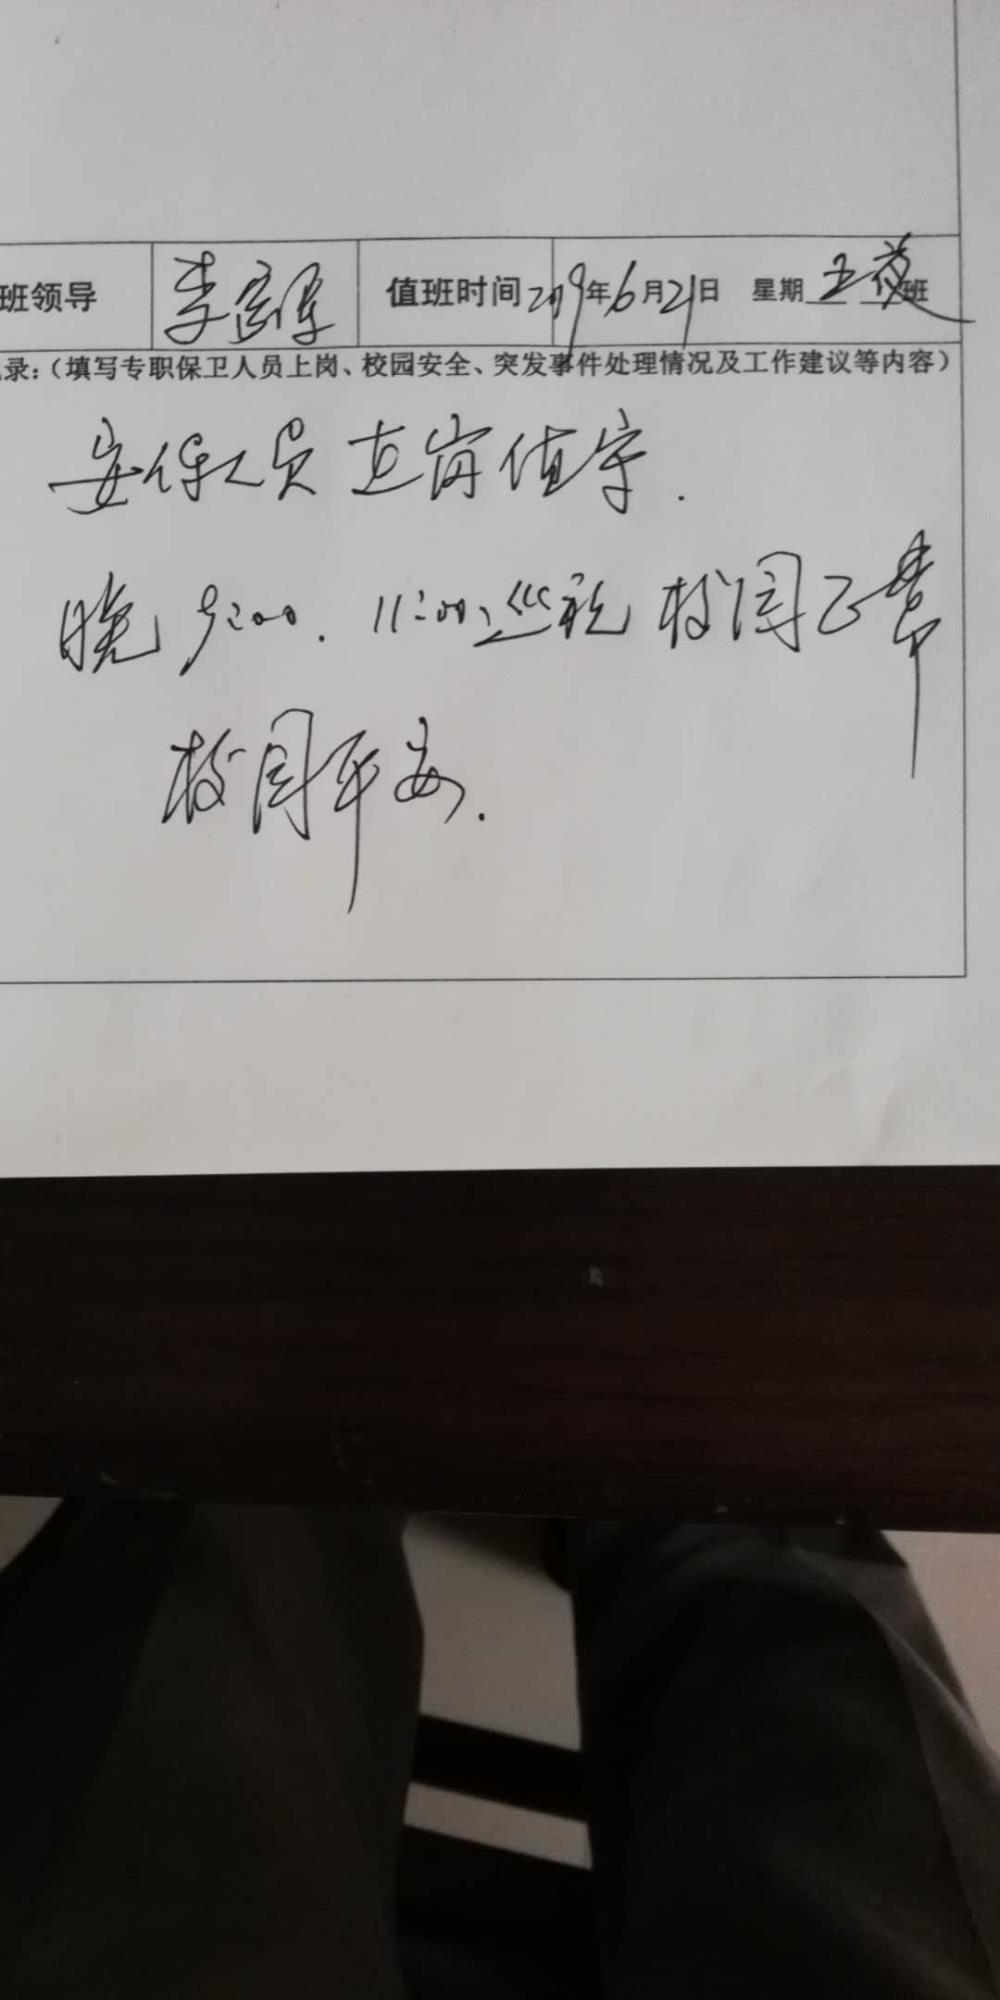 班领导 李 值班时间 2019年6月21日 星期五 夜班
录：（填写专职保卫人员上岗、校园安全、突发事件处理情况及工作建议等内容）
安保人员在岗值守.
晚9:00、11:00巡视校园正常
校园平安.